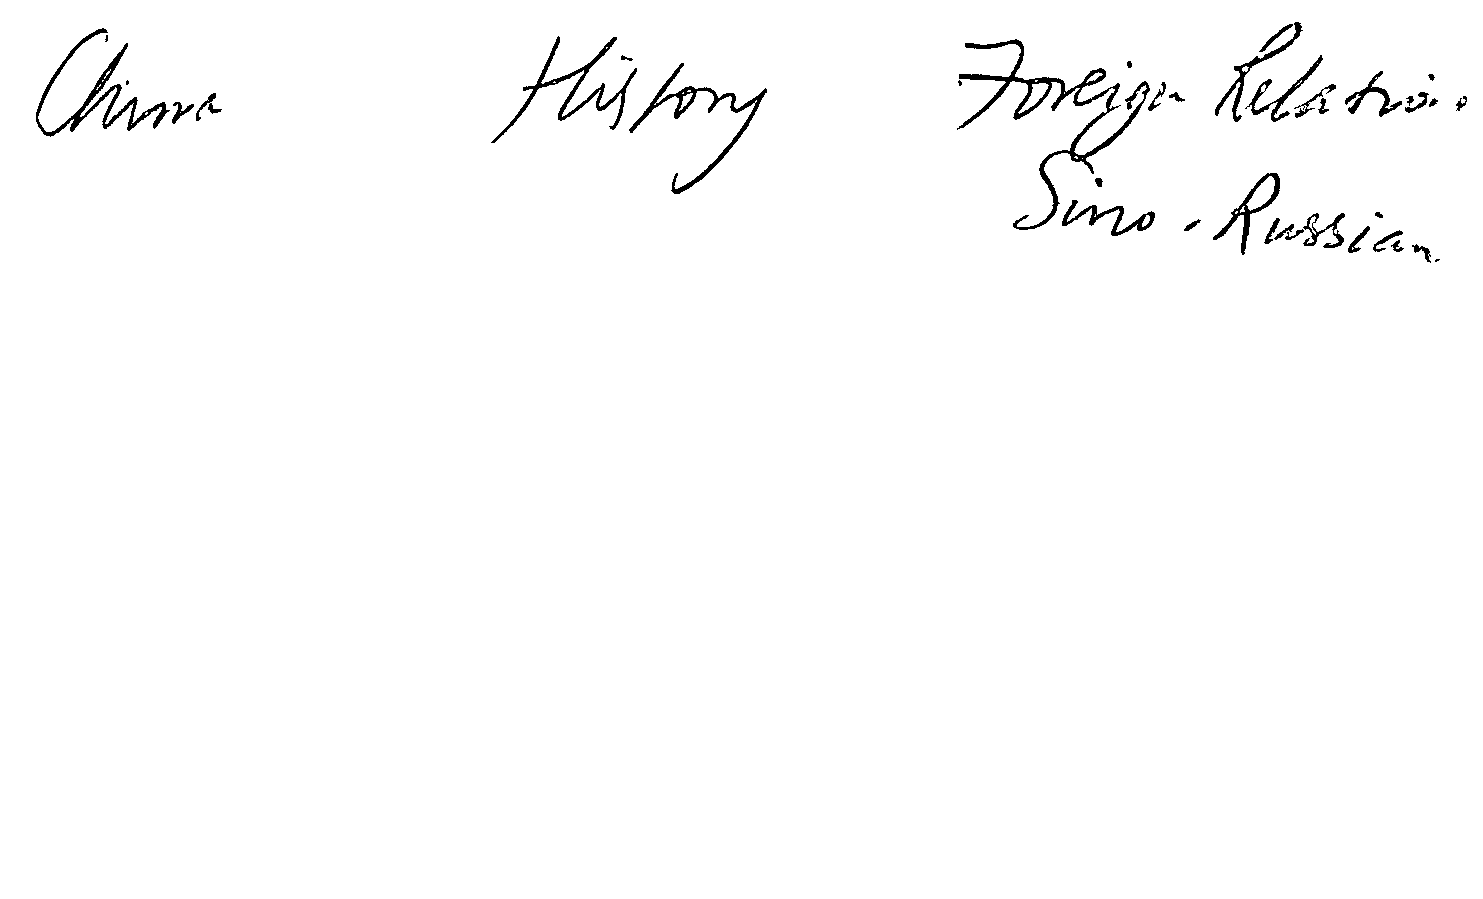 China History Foreign Relations
Sino-Russian